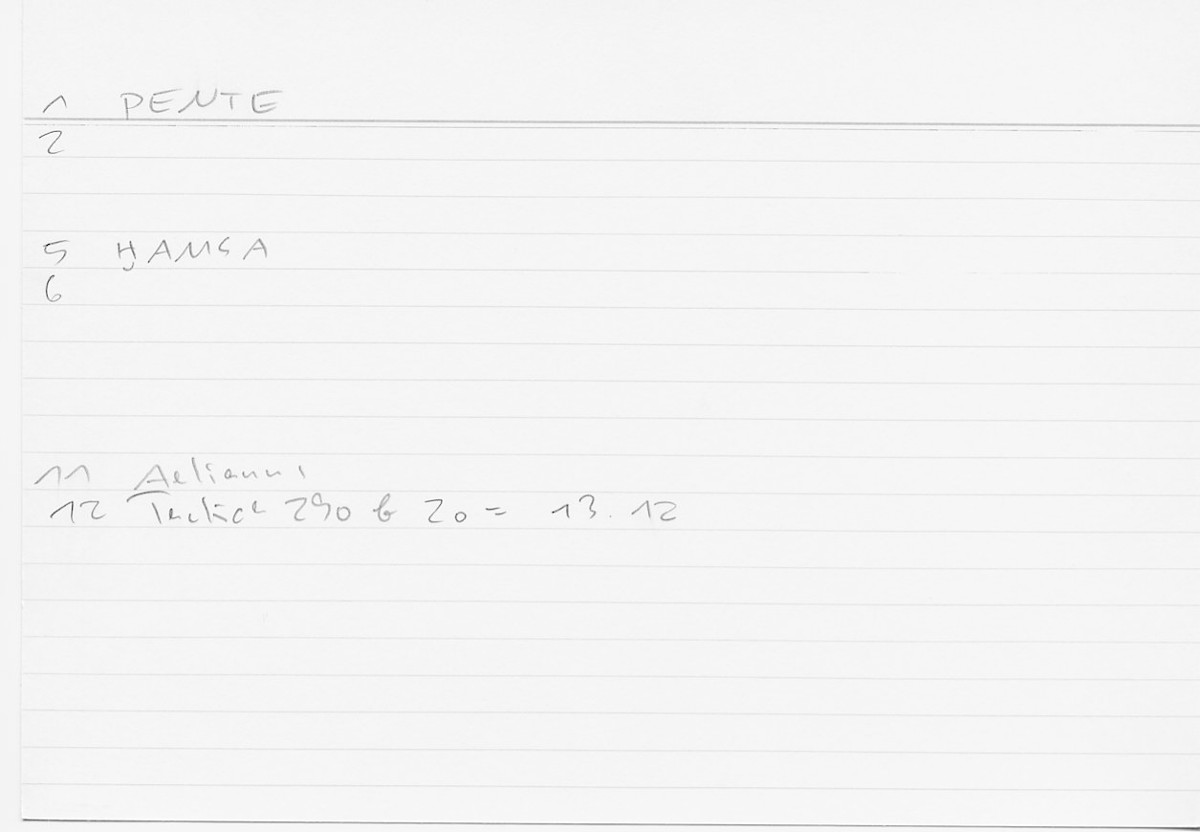 1 PENTE
2
5 ḪAMSA
6
11 Aelianus
12 Tactica 290 b 20 = 13.12